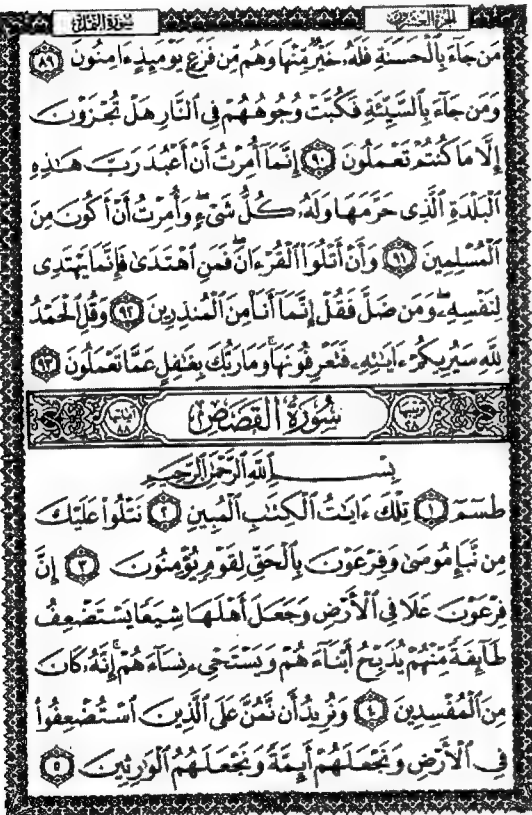 الجزء العشرون
سورة النمل
مَن جَآءَ بِٱلْحَسَنَةِ فَلَهُۥ خَيْرٌ مِّنْهَا وَهُم مِّن فَزَعٍ يَوْمَئِذٍ ءَامِنُونَ ٨٩
وَمَن جَآءَ بِٱلسَّيِّئَةِ فَكُبَّتْ وُجُوهُهُمْ فِى ٱلنَّارِ هَلْ تُجْزَوْنَ
إِلَّا مَا كُنتُمْ تَعْمَلُونَ ٩٠ إِنَّمَآ أُمِرْتُ أَنْ أَعْبُدَ رَبَّ هَٰذِهِ
ٱلْبَلْدَةِ ٱلَّذِى حَرَّمَهَا وَلَهُۥ كُلُّ شَىْءٍ ۖ وَأُمِرْتُ أَنْ أَكُونَ مِنَ
ٱلْمُسْلِمِينَ ٩١ وَأَنْ أَتْلُوَا۟ ٱلْقُرْءَانَ ۖ فَمَنِ ٱهْتَدَىٰ فَإِنَّمَا يَهْتَدِى
لِنَفْسِهِۦ ۖ وَمَن ضَلَّ فَقُلْ إِنَّمَآ أَنَا۠ مِنَ ٱلْمُنذِرِينَ ٩٢ وَقُلِ ٱلْحَمْدُ
لِلَّهِ سَيُرِيكُمْ ءَايَٰتِهِۦ فَتَعْرِفُونَهَا ۚ وَمَا رَبُّكَ بِغَٰفِلٍ عَمَّا تَعْمَلُونَ ٩٣
ترتيبها ٢٨ سُورَةُ ٱلْقَصَصِ آياتها ٨٨
بِسْمِ ٱللَّهِ ٱلرَّحْمَٰنِ ٱلرَّحِيمِ
طسٓمٓ ١ تِلْكَ ءَايَٰتُ ٱلْكِتَٰبِ ٱلْمُبِينِ ٢ نَتْلُوا۟ عَلَيْكَ
مِن نَّبَإِ مُوسَىٰ وَفِرْعَوْنَ بِٱلْحَقِّ لِقَوْمٍ يُؤْمِنُونَ ٣ إِنَّ
فِرْعَوْنَ عَلَا فِى ٱلْأَرْضِ وَجَعَلَ أَهْلَهَا شِيَعًا يَسْتَضْعِفُ
طَآئِفَةً مِّنْهُمْ يُذَبِّحُ أَبْنَآءَهُمْ وَيَسْتَحْىِۦ نِسَآءَهُمْ ۚ إِنَّهُۥ كَانَ
مِنَ ٱلْمُفْسِدِينَ ٤ وَنُرِيدُ أَن نَّمُنَّ عَلَى ٱلَّذِينَ ٱسْتُضْعِفُوا۟
فِى ٱلْأَرْضِ وَنَجْعَلَهُمْ أَئِمَّةً وَنَجْعَلَهُمُ ٱلْوَٰرِثِينَ ٥